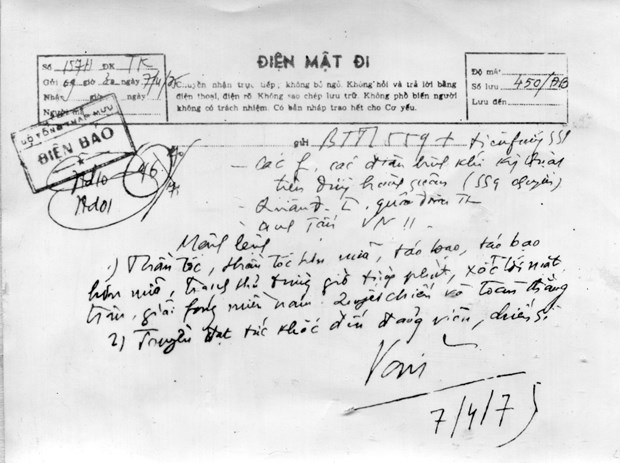 ĐIỆN MẬT ĐI
Số 157H ĐK TK
Gửi giờ ngày 7/4/75
Nhận giờ ngày
Người mã
Chuyển nhận trực tiếp; không bỏ ngỏ. Không hỏi và trả lời bằng
điện thoại, điện rõ. Không vao chép lưu trữ. Không phổ biến người
không có trách nhiệm. Có bản nháp trao hết cho Cơ yếu.
Độ mật
Số lưu 450/ĐB
Lưu đến
BỘ TỔNG THAM MƯU
ĐIỆN BÁO
46
Ad10
Ad01
gửi BTTL 559 + tiền phương 559
- Các f, các đơn vị binh khí kỹ thuật
tiến hành quân (559 chuyển)
- Quân đ. I, quân đoàn
Quang Tấn VN 11.
Mệnh lệnh
1) Thần tốc, thần tốc hơn nữa, táo bạo, táo bạo
hơn nữa, tranh thủ từng giờ từng phút, xốc tới mặt
trận, giải fóng miền nam. Quyết chiến và toàn thắng
2) Truyền đạt tức khắc đến đảng viên, chiến sĩ
Văn
7/4/75